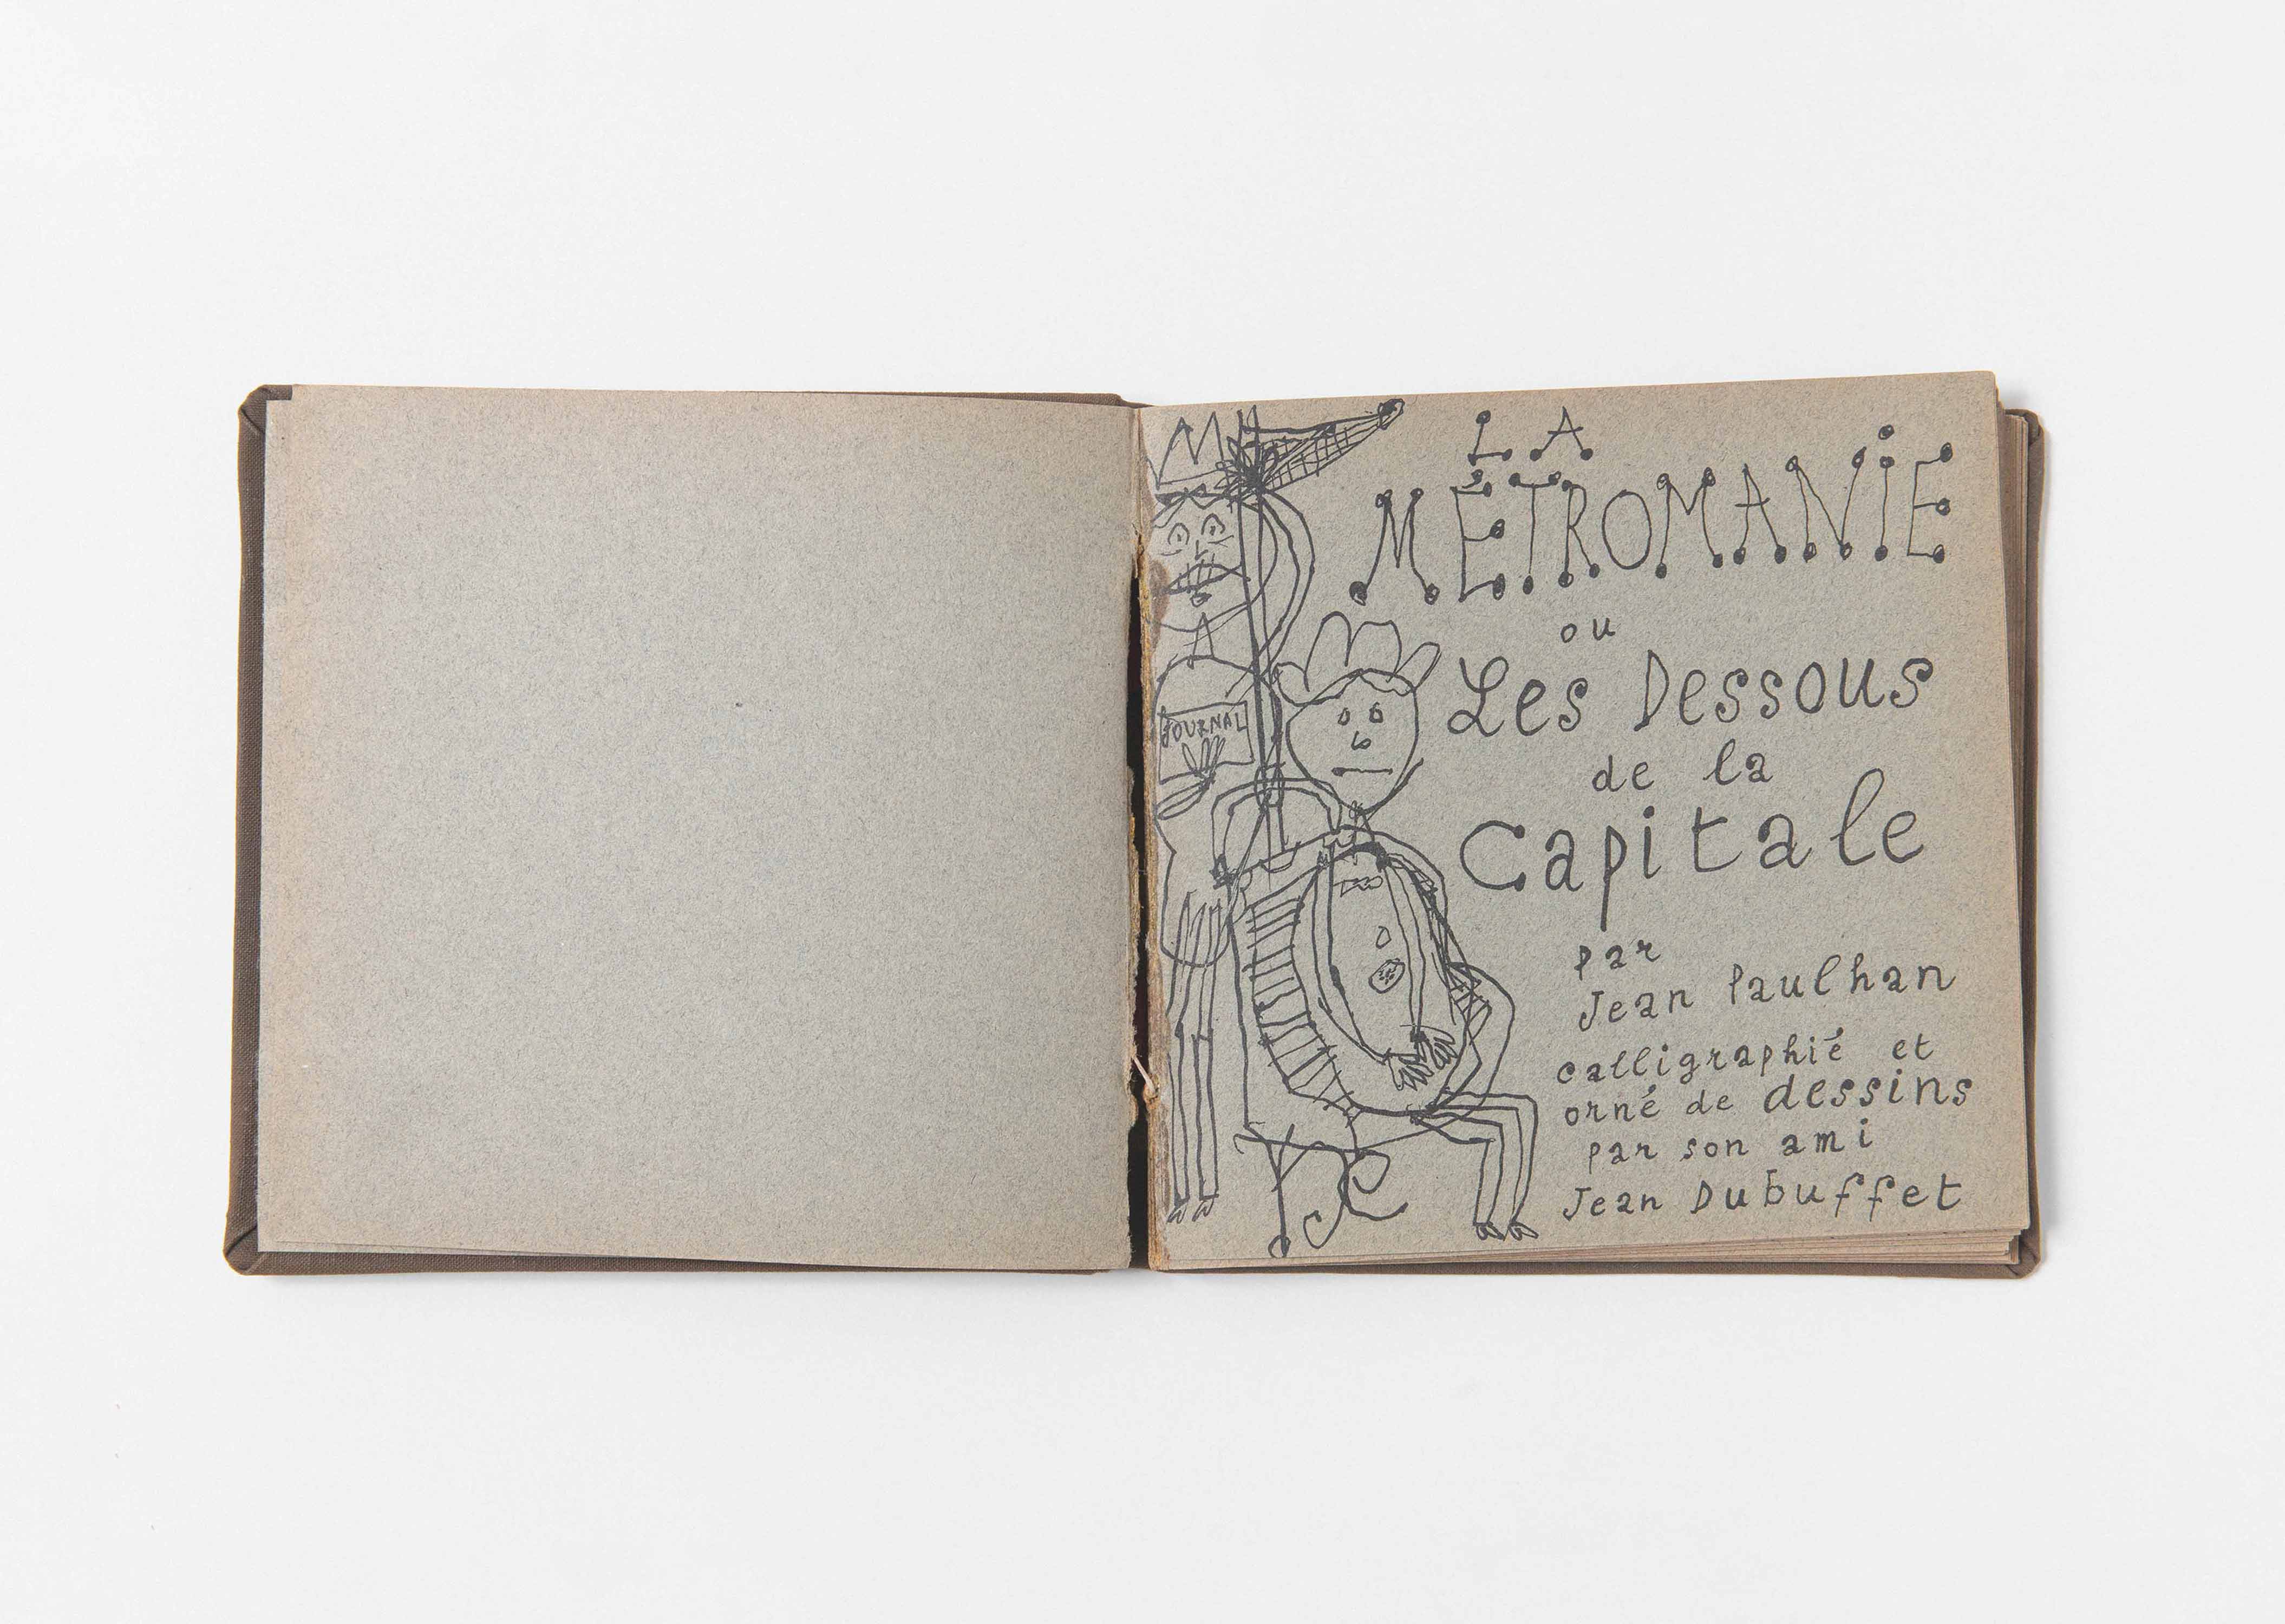 JOURNAL
LA
MÉTROMANIE
ou
Les Dessous
de la
Capitale
par
Jean Paulhan
calligraphié et
orné de dessins
par son ami
Jean Dubuffet